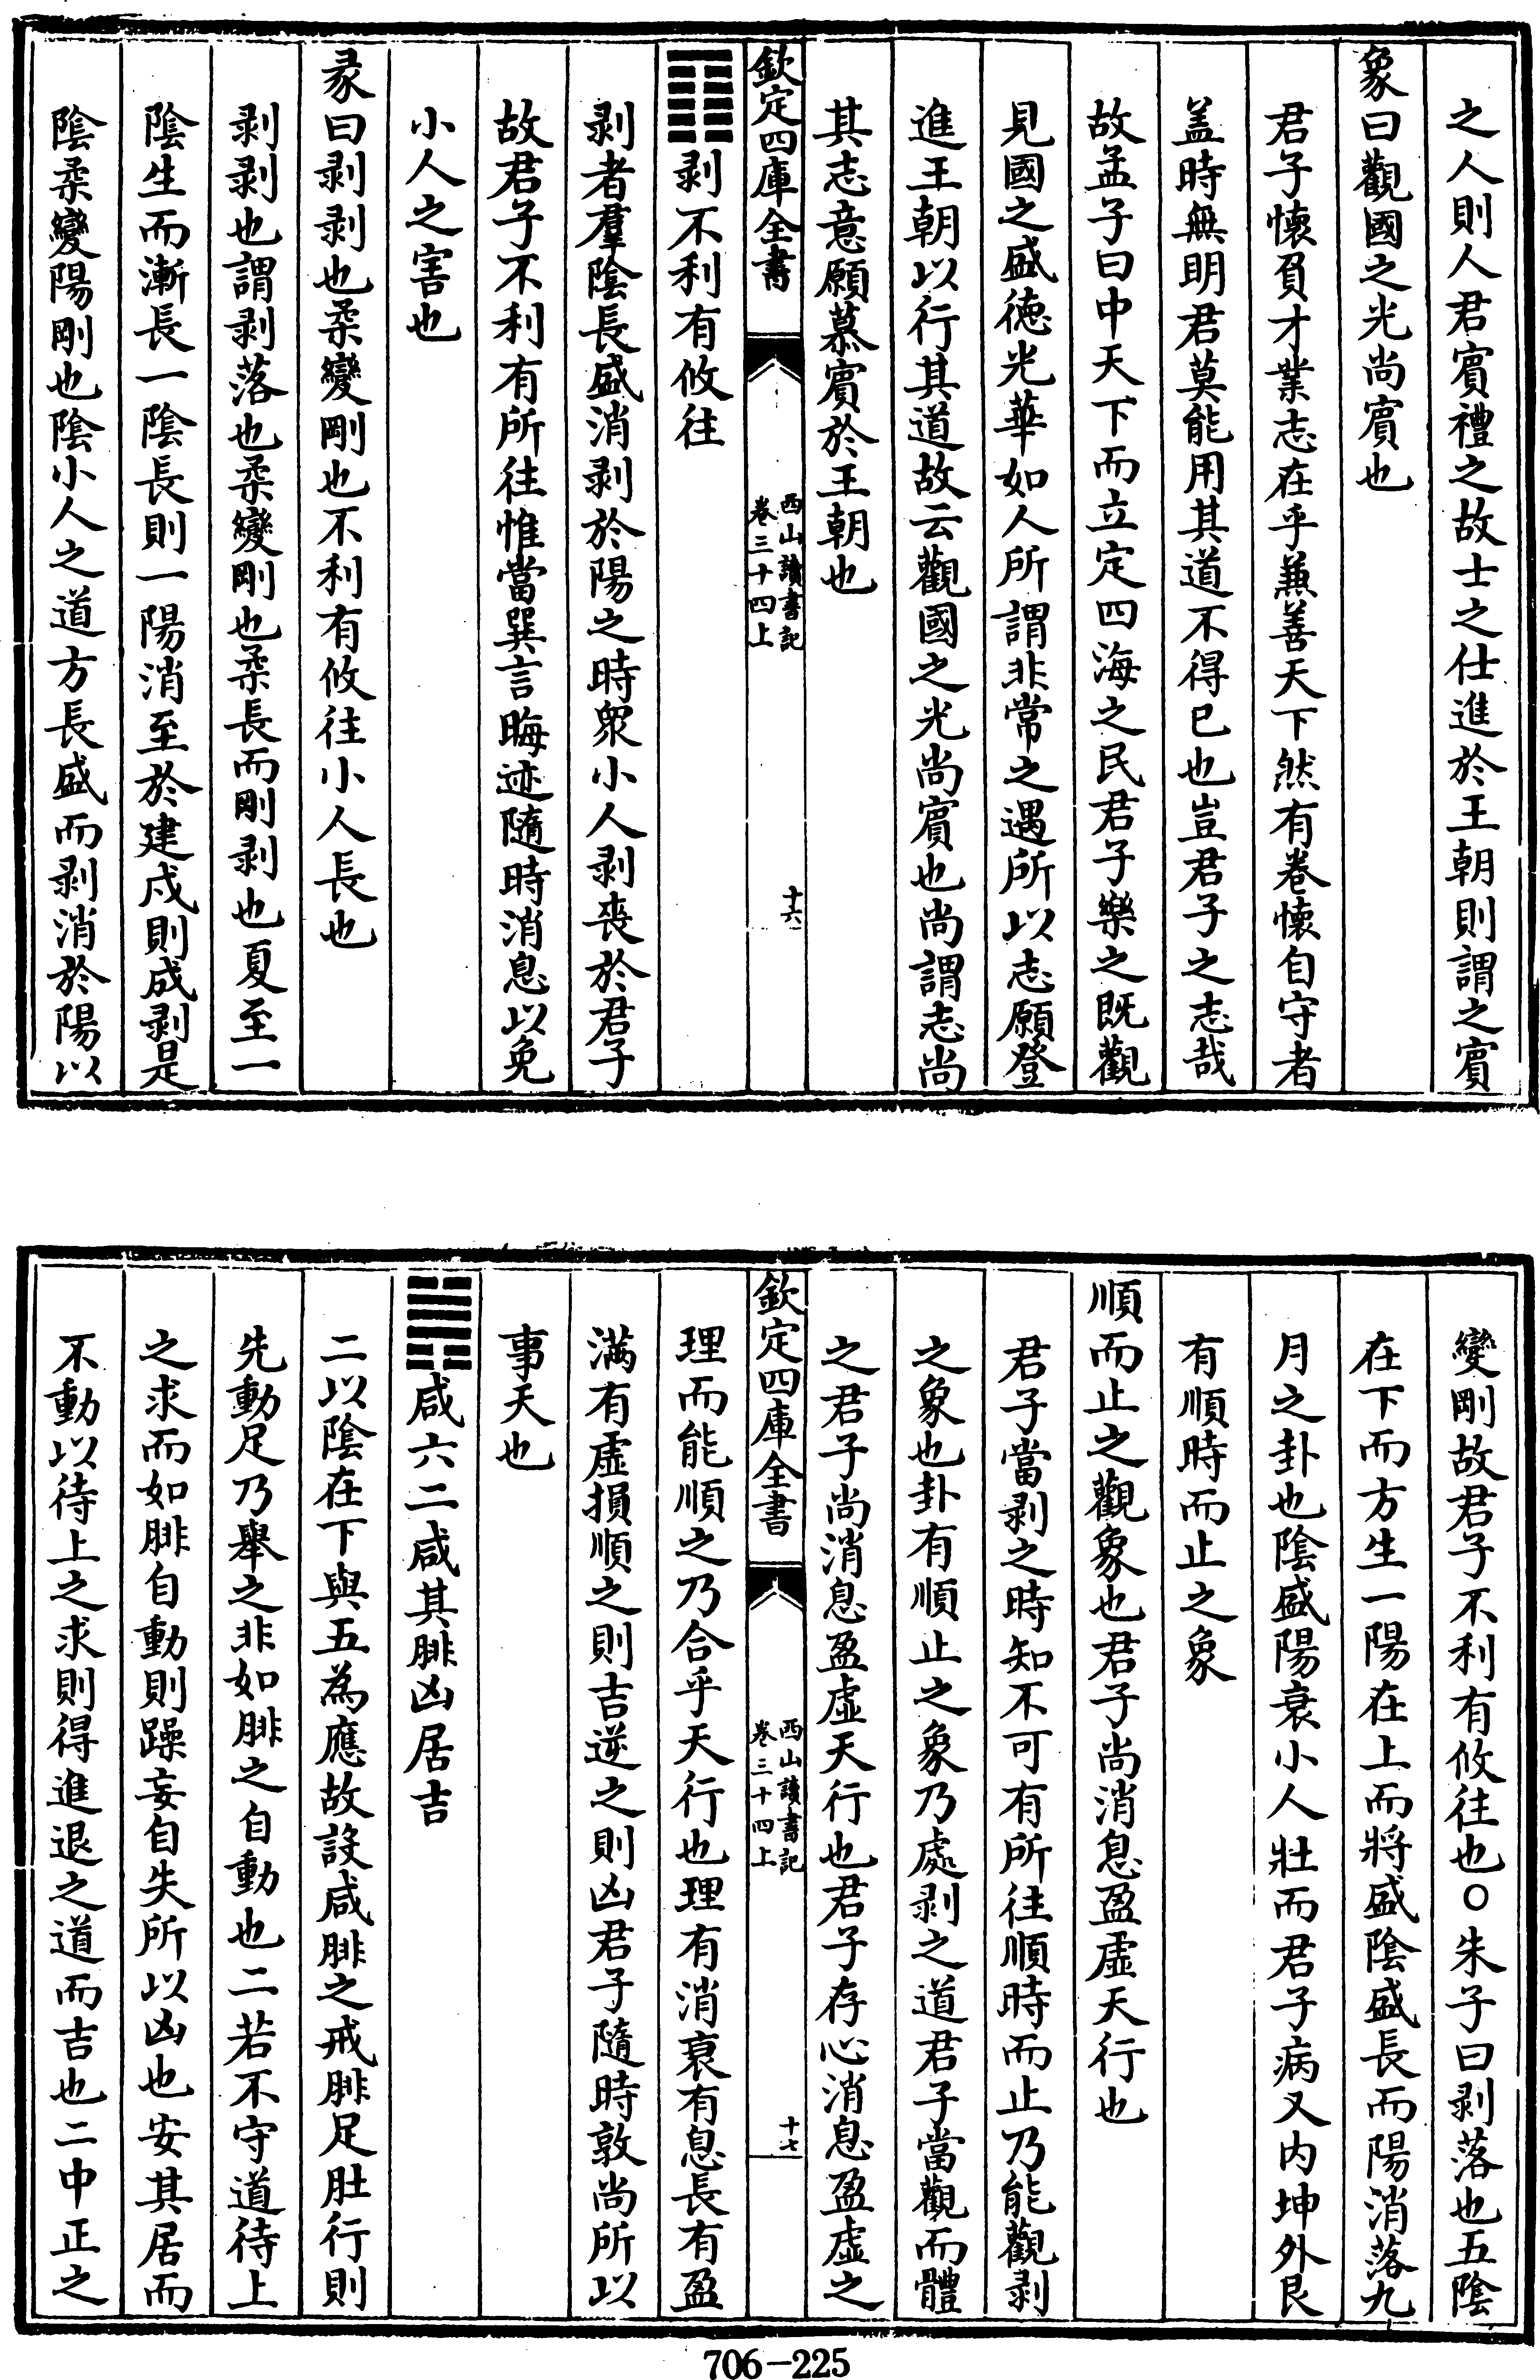 之人則人君賓禮之故士之仕進於王朝則謂之賓
象曰觀國之光尚賓也
君子懷負才業志在乎兼善天下然有卷懷自守者
盖時無明君莫能用其道不得已也豈君子之志哉
故孟子曰中天下而立定四海之民君子樂之既觀
見國之盛徳光華如人所謂非常之遇所以志願登
進王朝以行其道故云觀國之光尚賓也尚謂志尚
其志意願慕賓於王朝也
欽定四庫全書
西山讀書記
卷三十四上
十六
䷖剥不利有攸往
剥者羣陰長盛消剥於陽之時衆小人剥喪於君子
故君子不利有所往惟當巽言晦迹隨時消息以免
小人之害也
彖曰剥剥也柔變剛也不利有攸往小人長也
剥剥也謂剥落也柔變剛也柔長而剛剥也夏至一
陰生而漸長一陰長則一陽消至於建戌則成剥是
陰柔變陽剛也陰小人之道方長盛而剥消於陽以
變剛故君子不利有攸往也○朱子曰剥落也五陰
在下而方生一陽在上而將盛陰盛長而陽消落九
月之卦也陰盛陽衰小人壯而君子病又内坤外艮
有順時而止之象
順而止之觀象也君子尚消息盈虛天行也
君子當剥之時知不可有所往順時而止乃能觀剥
之象也卦有順止之象乃處剥之道君子當觀而體
之君子尚消息盈虛天行也君子存心消息盈虛之
欽定四庫全書
西山讀書記
卷三十四上
十七
理而能順之乃合乎天行也理有消衰有息長有盈
滿有虛損順之則吉逆之則凶君子隨時敦尚所以
事天也
䷞咸六二咸其腓凶居吉
二以陰在下與五為應故設咸腓之戒腓足肚行則
先動足乃舉之非如腓之自動也二若不守道待上
之求而如腓自動則躁妄自失所以凶也安其居而
不動以待上之求則得進退之道而吉也二中正之
706-225